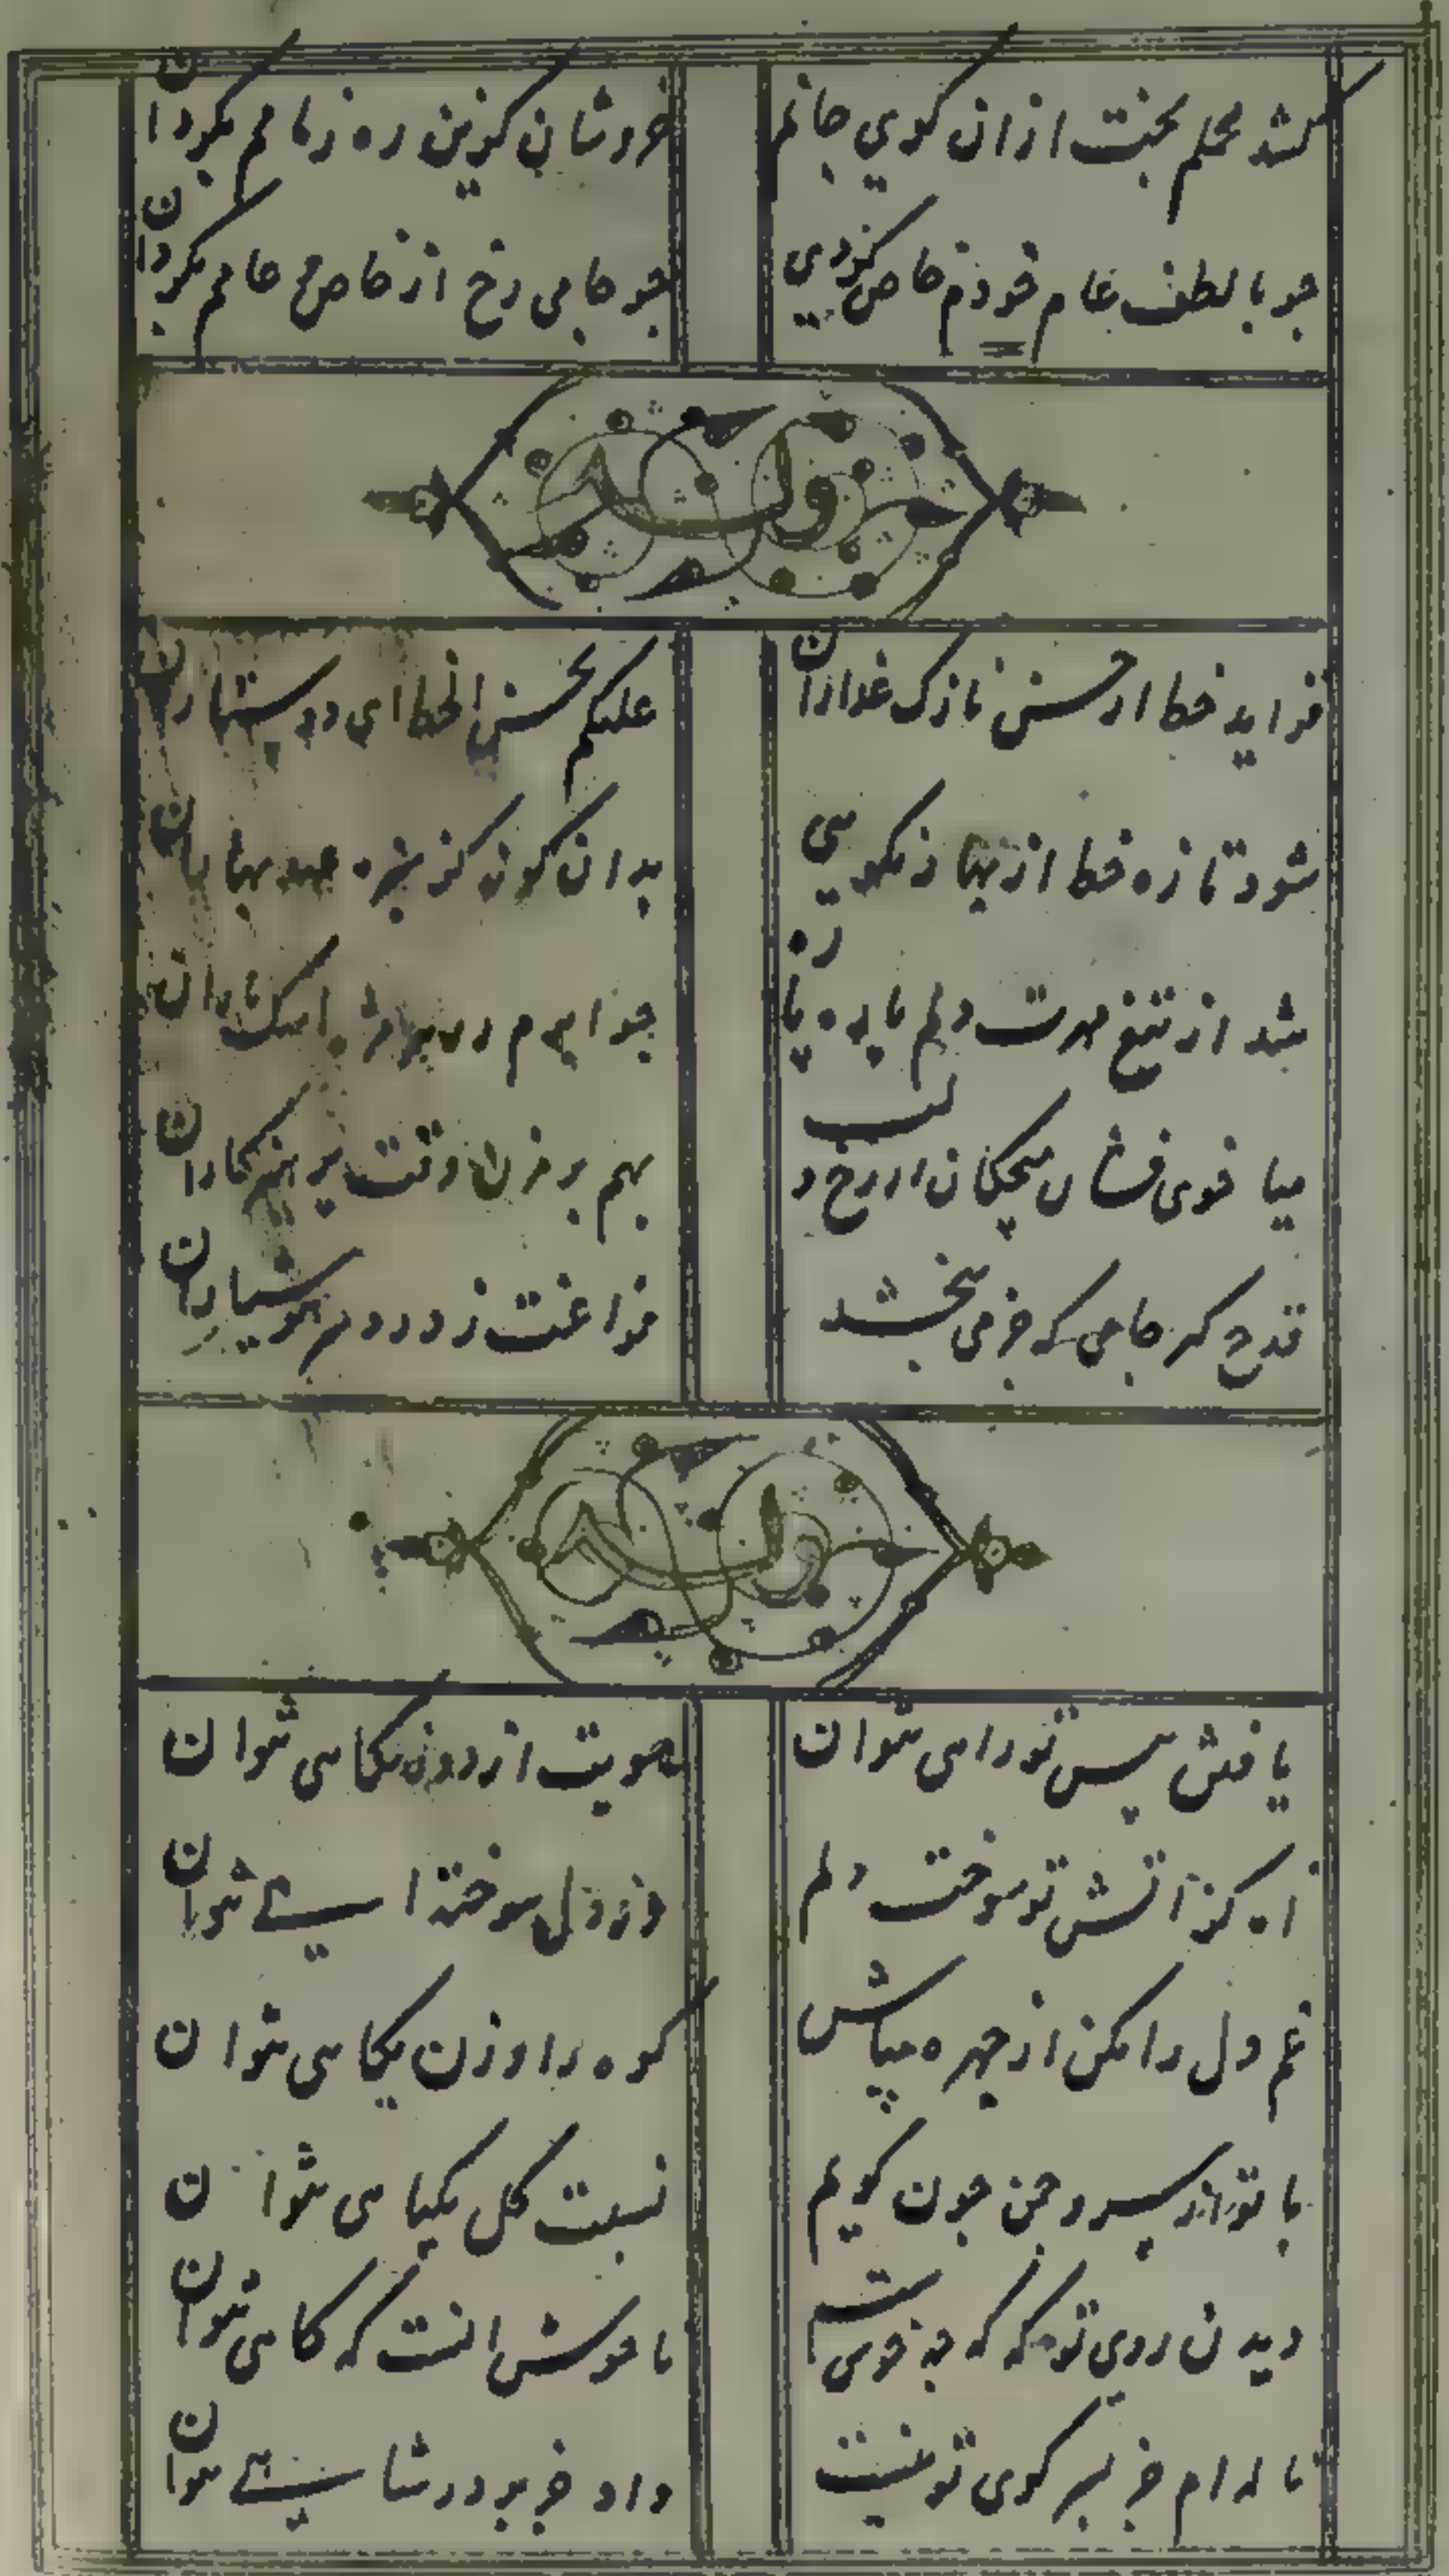 کشد محملم بخت ازان کوی جانم
خروشان کزین ره زمامم بکردان
چو با لطف عام خودم خاص کردی
چو جامی رخ از خاص و عامم بکردان
وله
فزاید خط از حسن نازک عذاران
علیکم بحسن الخط ای دوستداران
شود تازه خط از بهار نکویی
بدان کون کز سبزه عهد بهاران
شد از تیغ مهرت دلم پاره پاره
چو
میا خوی فشان می چکان از رخ و لب
بهم بر مزن وقت پرهیزکاران
قدح کر جامی که جز می نبخشد
فراغت ز درد سر هوشیاران
وله
یافتن پیش تو راهی نتوان
سویت از دور نکاهی نتوان
اه کز اتش تو سوخت دلم
وز دل سوخته اهی نتوان
غم دل را مکن از چهره قیاس
کوه را وزن بکاهی نتوان
با تو از سرو چمن چون کویم
نسبت کل بکیاهی نتوان
دیدن روی تو که که چه خوش است
ناخوش انست که کاهی نتوان
ناله ام جز بسر کوی تو نیست
داد جز بر در شاهی نتوان